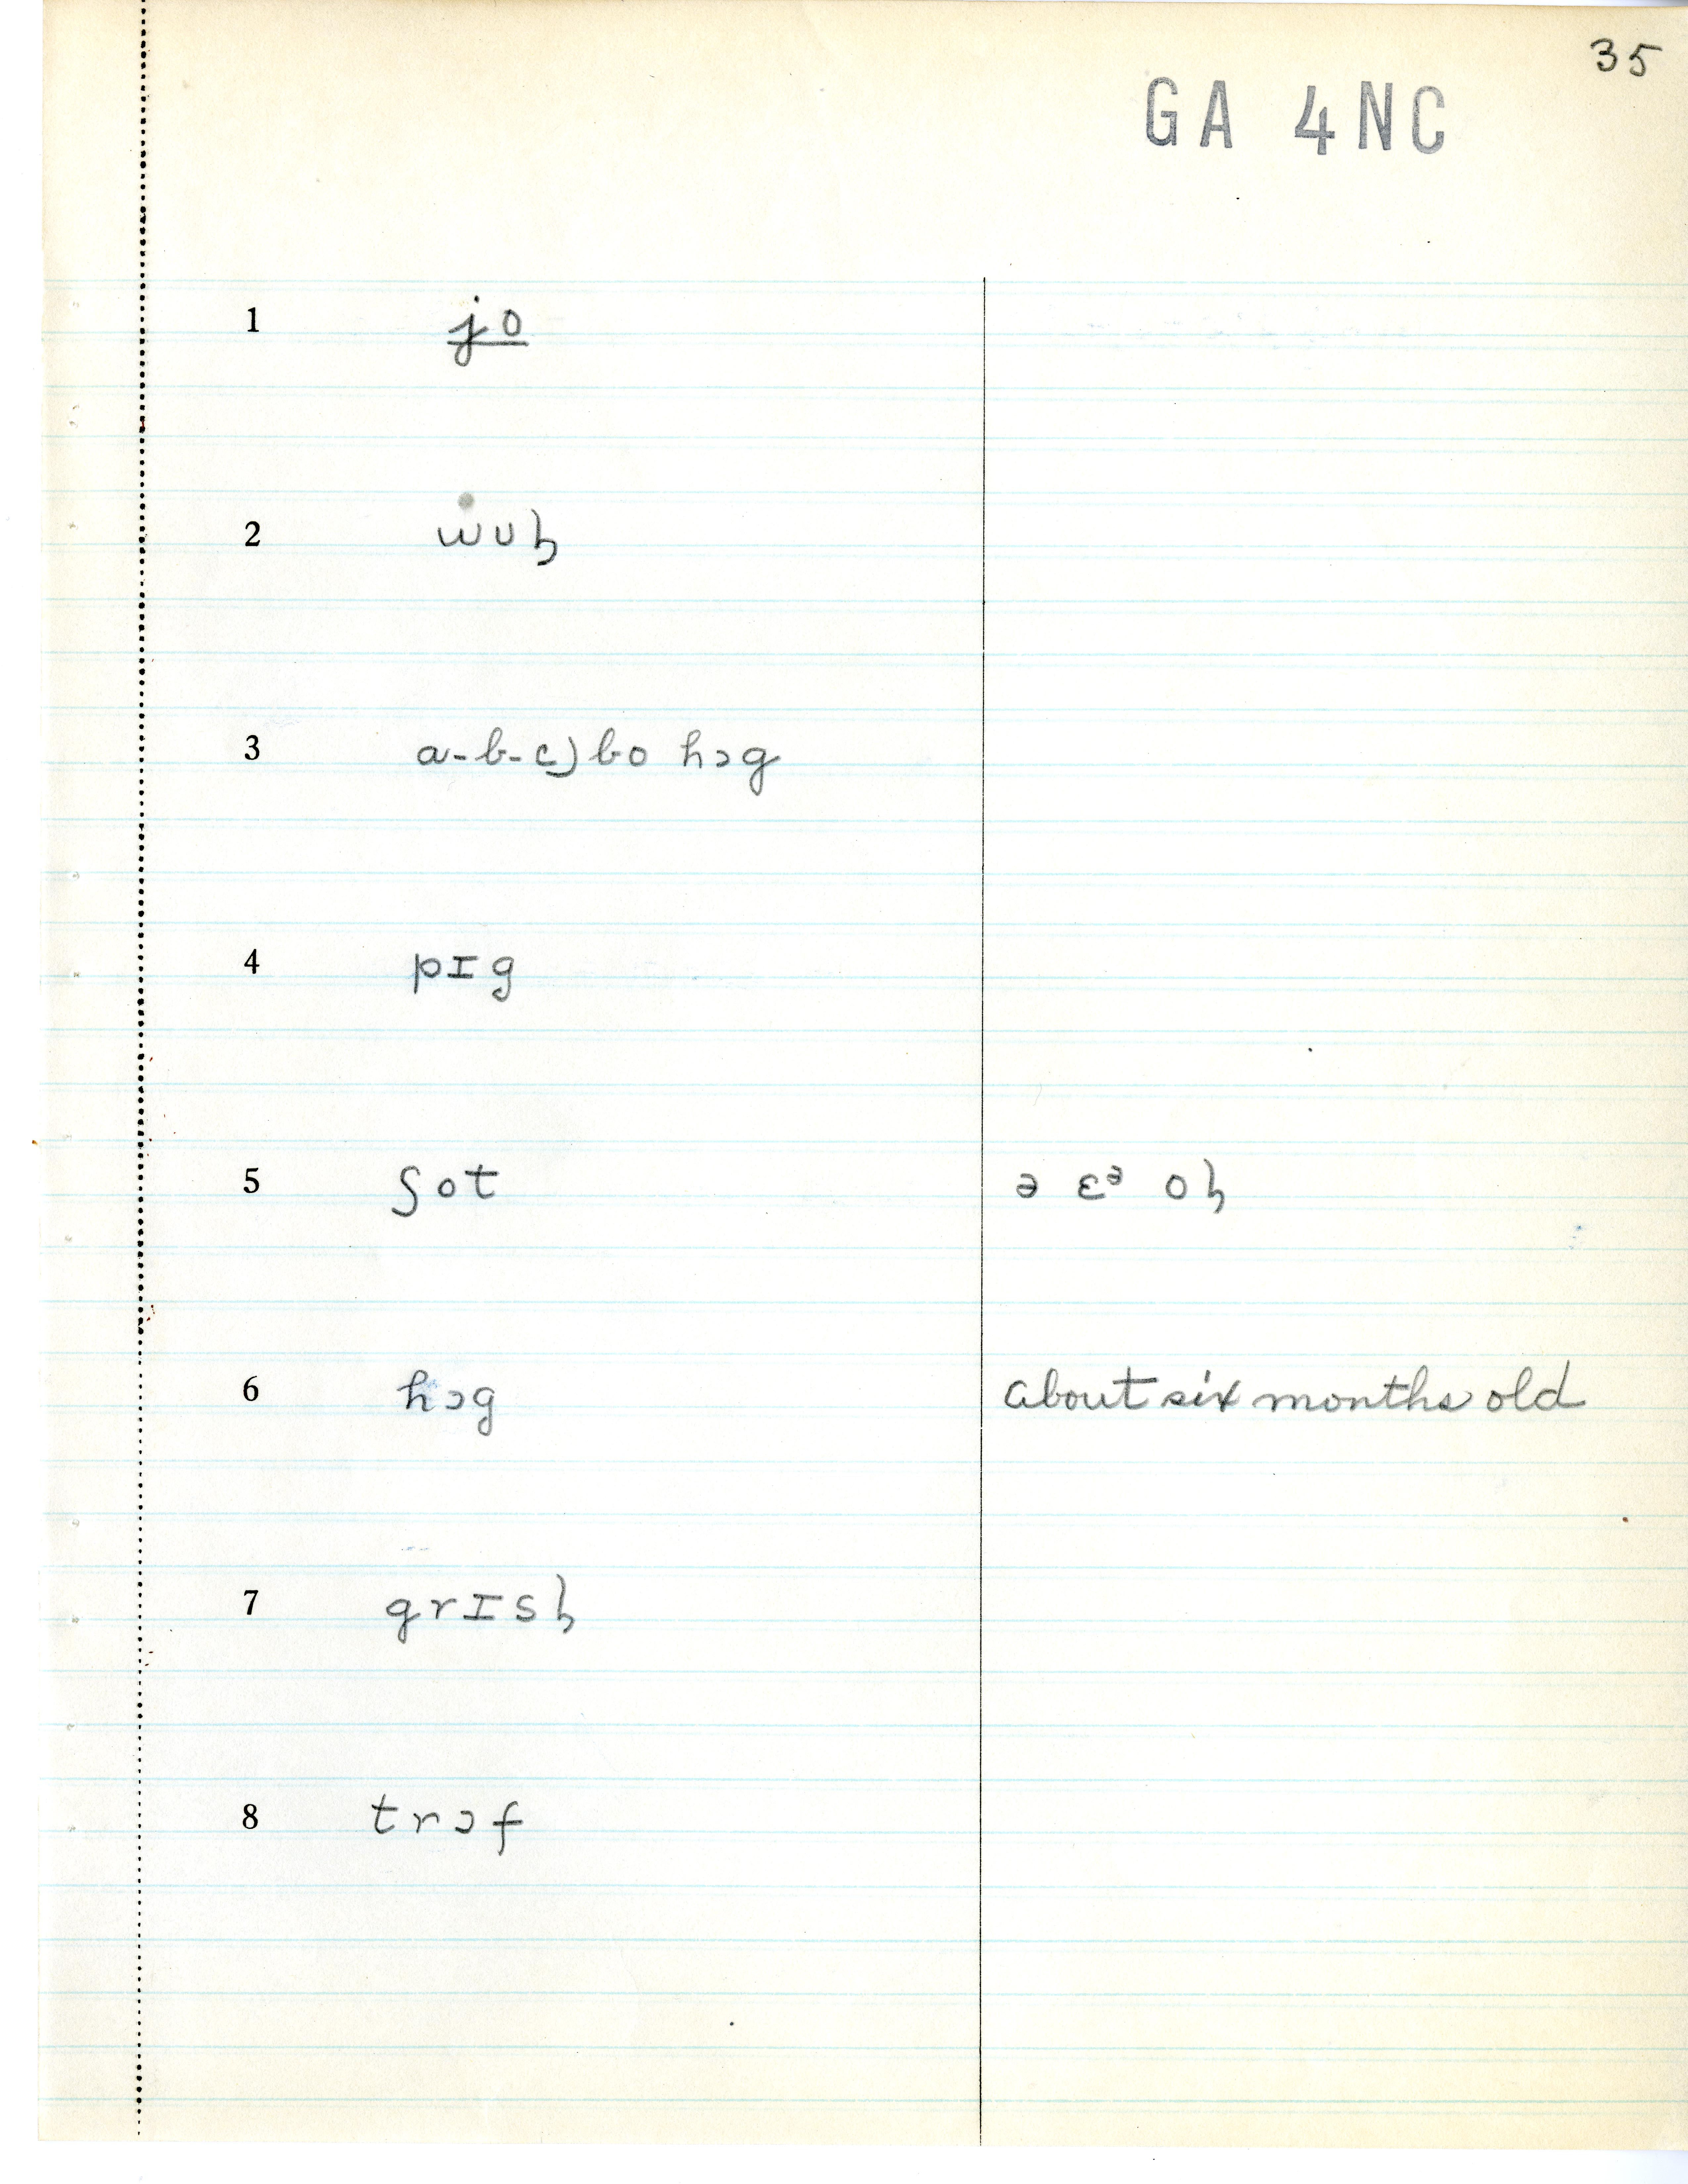 35
GA 4NC
1 jo
2 wʊɦ
3 a-b-c) bo hɔg
4 pɪg
5 ʃot ə ɛᵊ oɦ
6 hɔg about six months old
7 grɪsɦ
8 trɔf